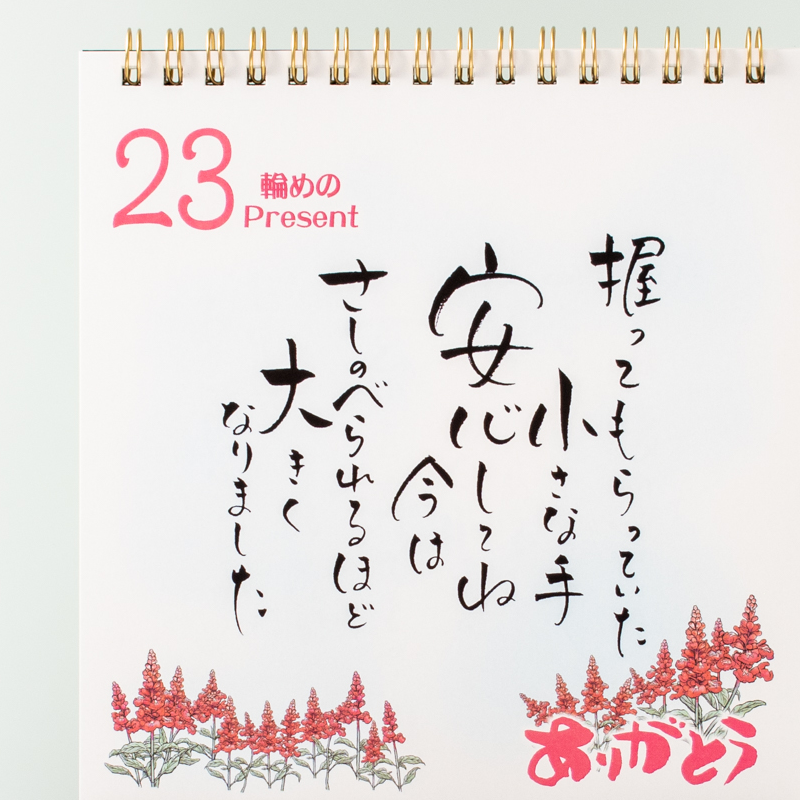 23
輪めの
Present
握ってもらっていた
小さな手
安心してね
今は
さしのべられるほど
大きく
なりました
ありがとう